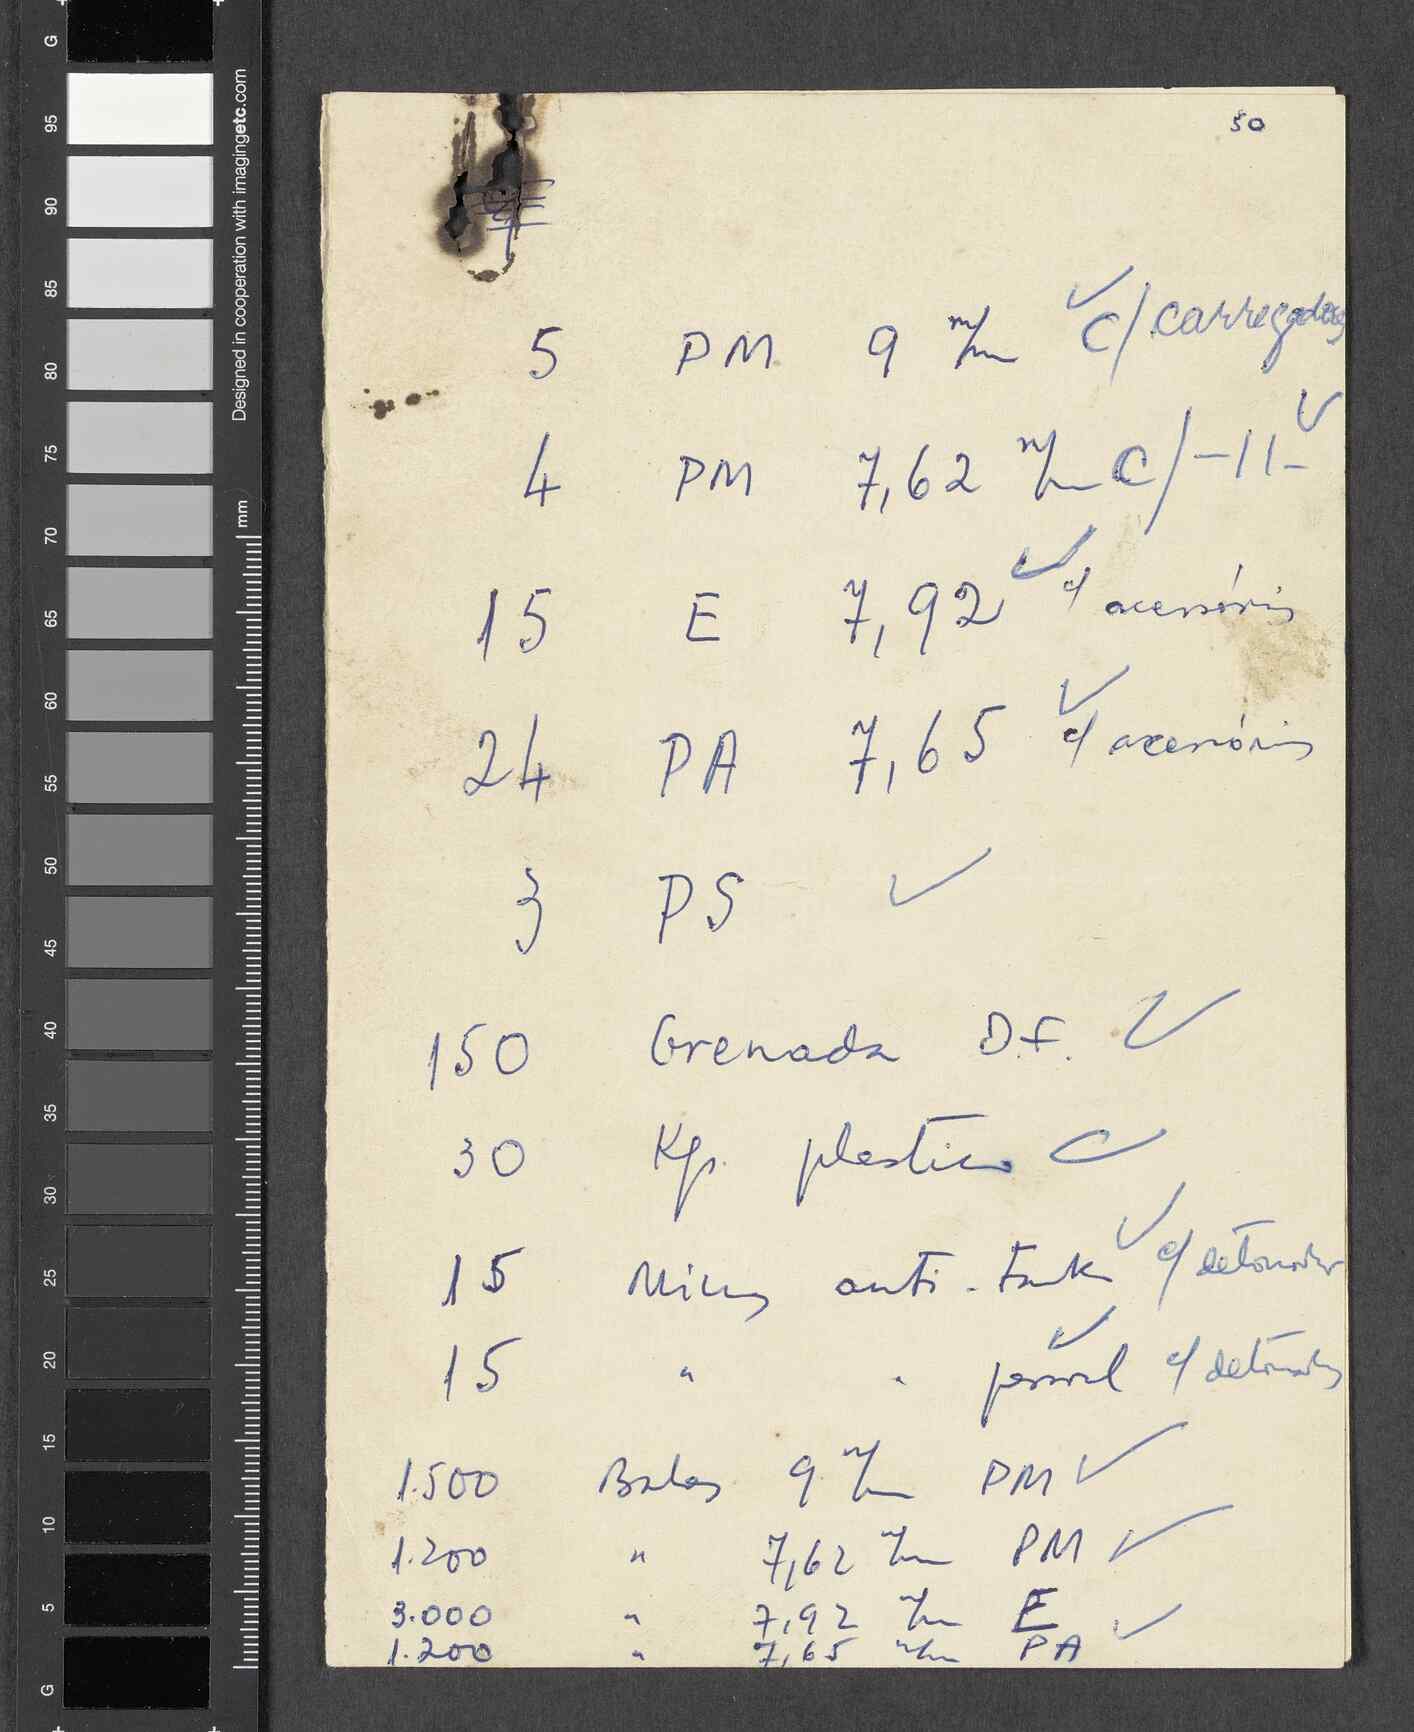 50
5 PM 9 m/m c/ carregadores
4 PM 7,62 m/m C/ -11-
15 E 7,92 c/ acessórios
24 PA 7,65 c/ acessórios
3 PS
150 Grenada D.F.
30 Kgs. plastico
15 Minas anti-tank c/ detonador
15 " " pessoal c/ detonador
1.500 Balas 9 m/m PM
1.200 " 7,62 m/m PM
3.000 " 7,92 m/m E
1.200 " 7,65 m/m PA
G
95
90
85
80
75
70
65
60
55
50
45
40
35
30
25
20
15
10
5
G
Designed in cooperation with imagingetc.com
mm